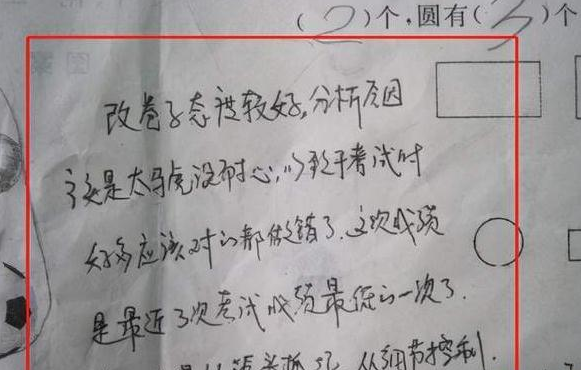 (2)个,圆有(3)个
改卷子态度较好,分析原因
主要是太马虎没耐心,以致于考试时
好多应该对的都做错了.这次成绩
是最近3次考试成绩最低的一次了.
从细节控制.